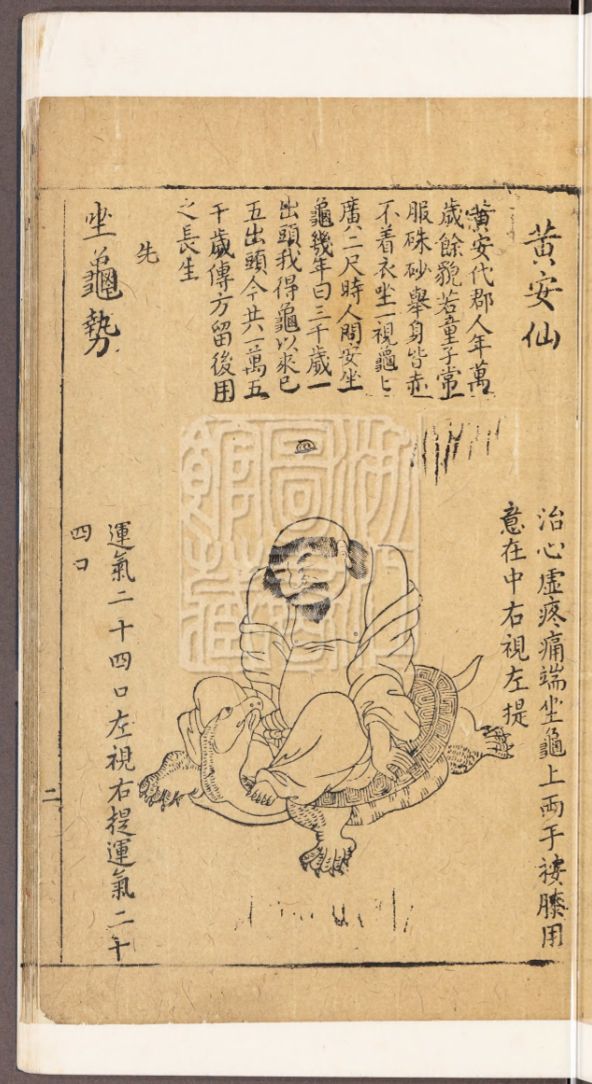 黃安仙
黃安代郡人年萬
歲餘貌若童子常
服硃砂舉身皆赤
不着衣坐一視龜上
廣二尺時人問安坐
龜幾年曰三千歲一
出頭我得龜以來已
五出頭今共一萬五
千歲傳方留後用
之長生
先
坐龜勢
治心虛疼痛端坐龜上兩手褛膝用
意在中右視左提
運氣二十四口左視右提運氣二十
四口
二
浙江圖書館藏